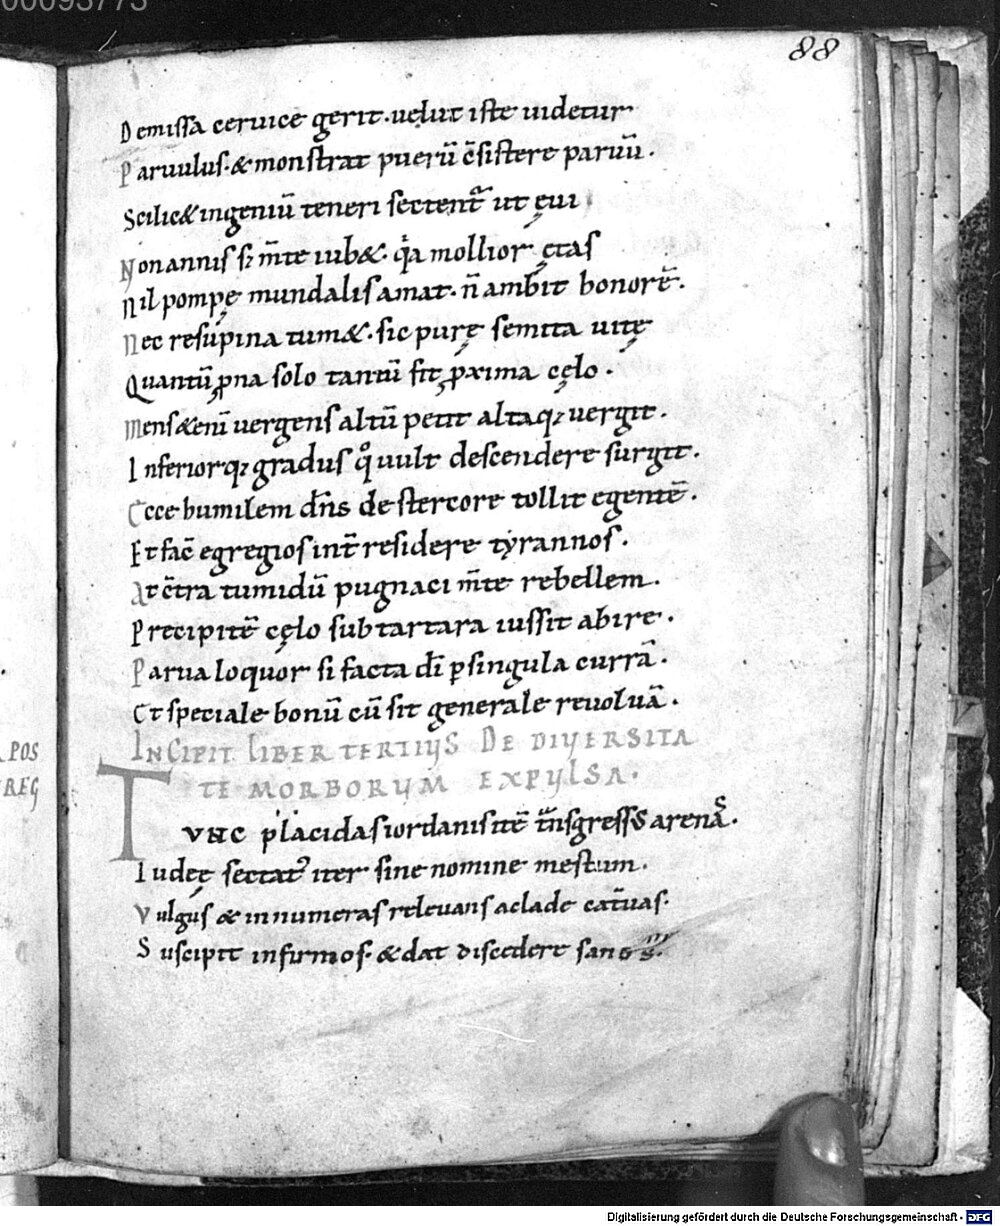 00093773
88
Demissa ceruice gerit. uelut iste uidetur
Paruulus. & monstrat puerū c̄sistere paruū.
Scilic& ingeniū teneri sectent᷑ ut ęui
Non annis sꝫ m̄te iub&. qͥa mollior ętas
Nil pompę mundalis amat. n̄ ambit honorē.
Nec resupina tum&. sic purę semita uitę
Quantū ꝓna solo tantū fit ꝓxima cęlo.
Mens &eni vergens altū petit altaqꝫ vergit.
Inferiorqꝫ gradus qͦ uult descendere surgit.
Ecce humilem dn̄s de stercore tollit egentē.
Et fac̄ egregios int̄ residere tyrannos.
At c̄tra tumidū pugnaci m̄te rebellem.
Precipitē cęlo sub tartara iussit abire.
Parua loquor si facta dī ꝑ singula currā.
Et speciale bonū cū sit generale reuoluā.
INCIPIT LIBER TERTIUS DE DIUERSITA
TE MORBORUM EXPULSA.
TUNC placidas iordanis itē tͣnsgressus arenas.
Iudeę sectat᷑ iter sine nomine mestum.
Vulgus & innumeras releuans a clade cat̄uas.
Suscipit infirmos. & dat discedere sanos.
POS
REG
V
Digitalisierung gefördert durch die Deutsche Forschungsgemeinschaft - DFG